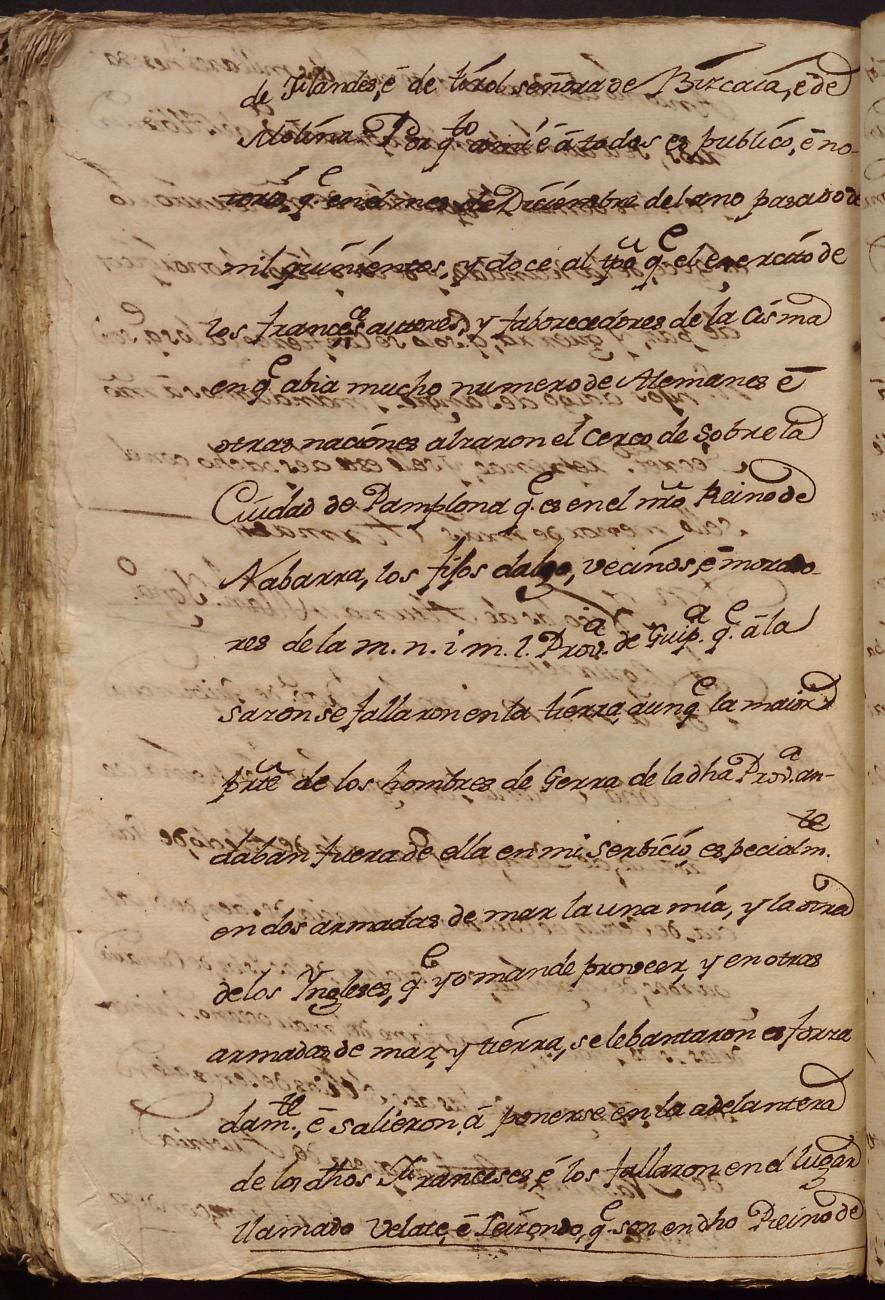 de Flandes, é de tirol señora de Bizcaia, é de
Molina Por q.to a mi é á todos es publico, é no-
torio, q.e en el mes de Diciembre del ano pasado de
mil quinientos, y doce al tpo q.e el exercito de
los franceses autores, y faborecedores de la Cisma
en q.e abia mucho numero de Alemanes é
otras naciones alzaron el Cerco de sobre la
Ciudad de Pamplona q.e es en el nrõ Reino de
Nabarra, los fijos dalgo, vecinos, é morado-
res de la m. n. i m. l. Prov.a de Guip.a q.e á la
sazon se fallaron en la tierra, aunq.e la maior
prte de los hombres de Gerra de la dha Prov.a an-
daban fuera de ella en mi serbicio especialm.te
en dos armadas de mar la una mia, y la otra
de los Yngleses, q.e yo mande proveer, y en otras
armadas de mar, y tierra, se lebantaron esforza
dam.te, é salieron á ponerse en la adelantera
de los dhos Franceses, é los fallaron en el lugar
llamado Velate, é Leizondo, q.e son en dho Reino de